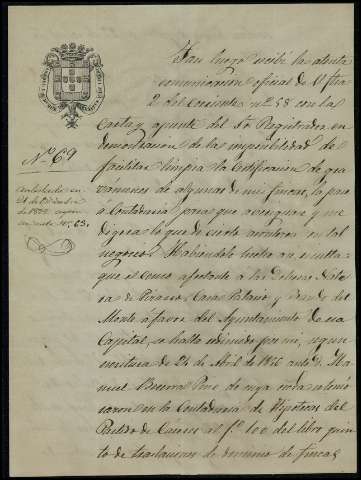 Tan luego recibí la atenta
comunicacion oficial de V. fha
2 del Corriente nº 58 con la
Carta y apunte del Sr. Registrador en
demostracion de la imposibilidad de
facilitar limpia la Certificacion de gra-
vamenes de algunas de mis fincas, la pasé
á Contaduria para que averiguara y me
digera lo que de cierto hubiera en tal
negocio. Habiendolo hecho
que el censo afectante á las Dehesas
de Casas y del
Monte á favor del Ayuntamiento de esa
Capital, se halla redimido por mi, segun
escritura de 24 de Abril de 1856 ante D. Ma-
nuel de cuya
razon en la Contaduria de Hipotecas del
Partido de Caceres al fº 100 del libro quin-
to de traslaciones de dominio de fincas
Nº 69
Contestada en
de Diciembre
de
nº 63.